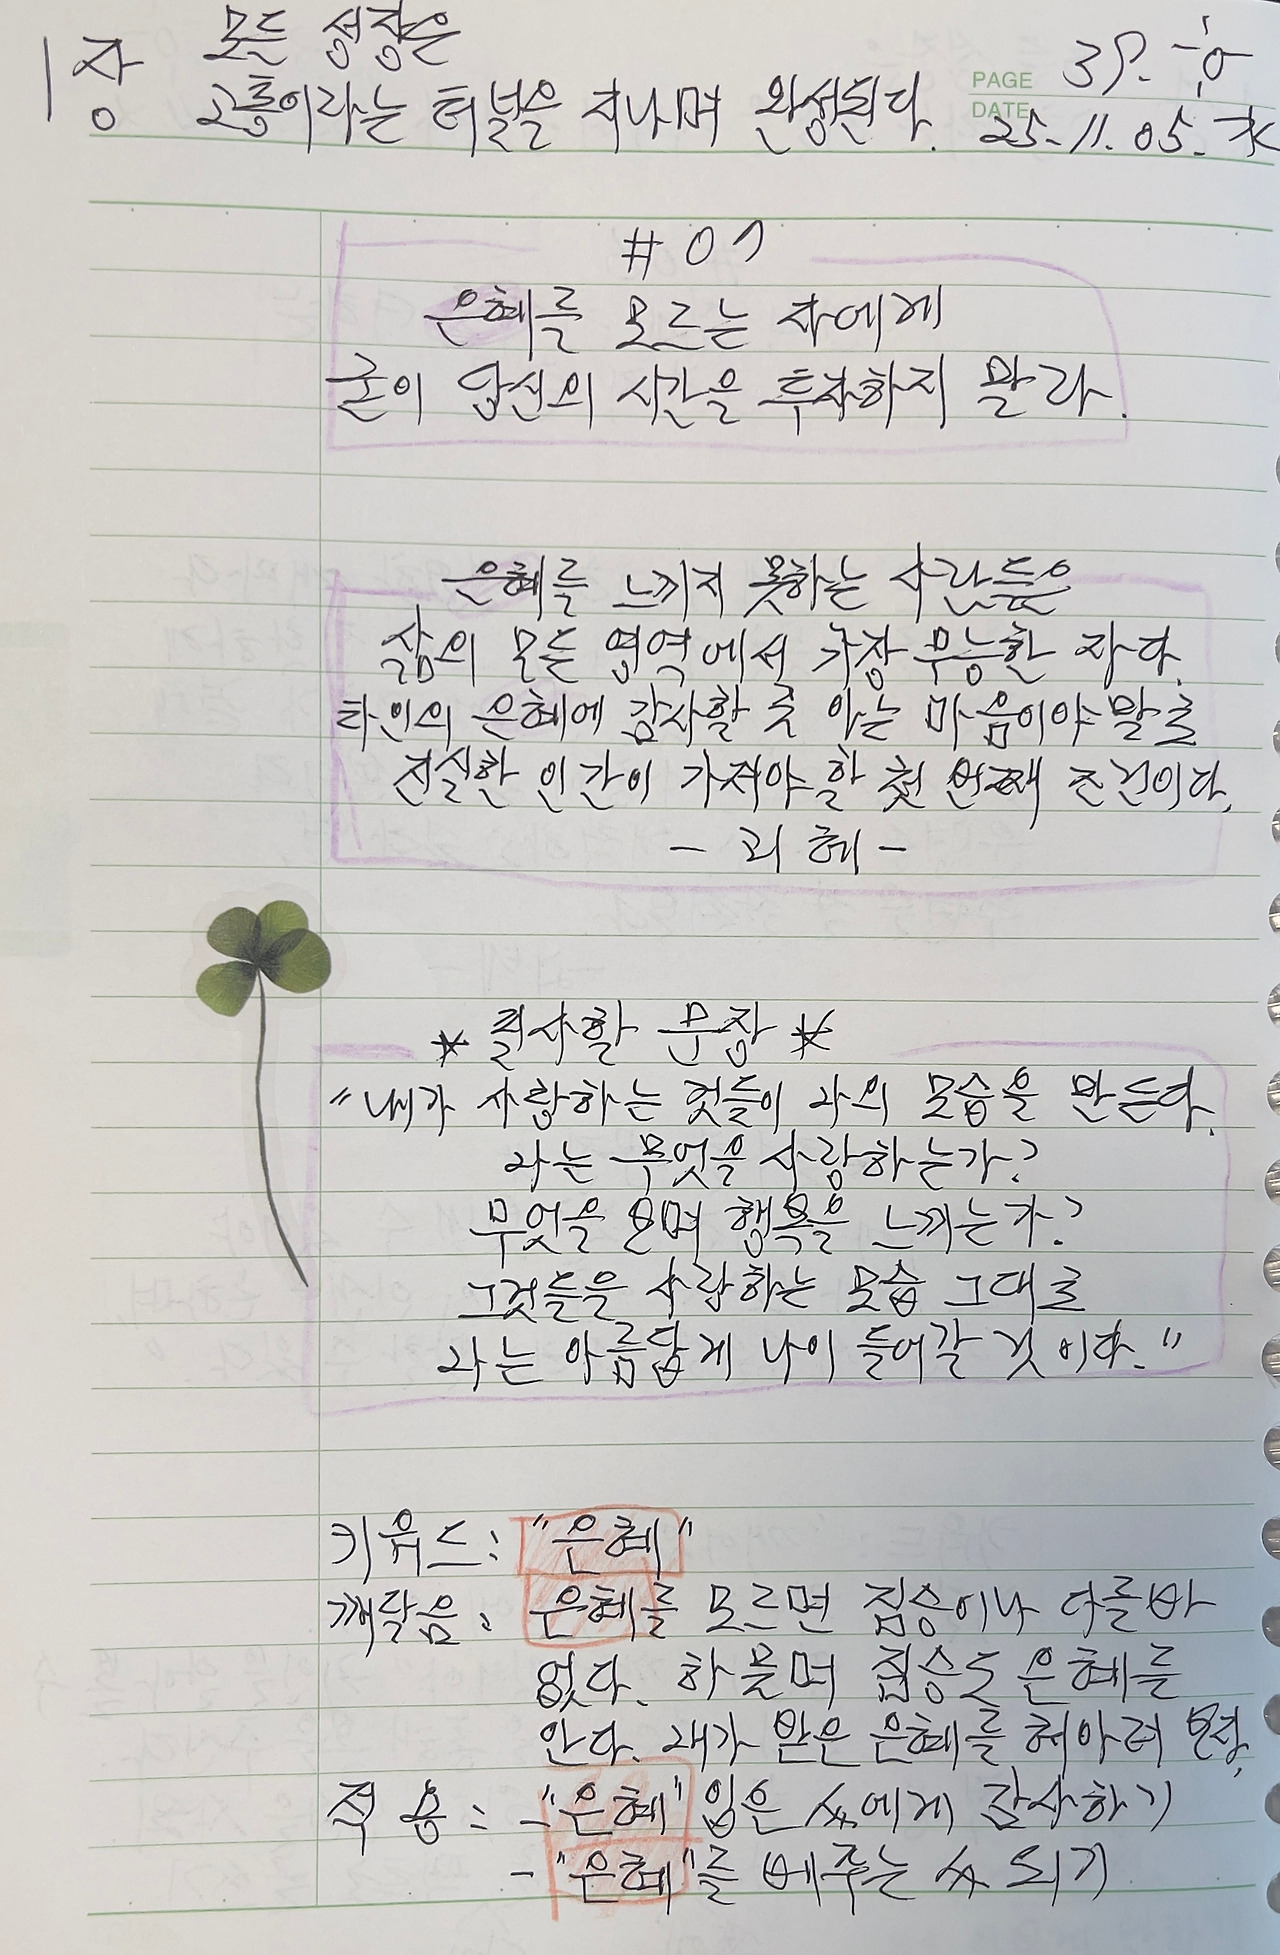 1장 모든 성장은
고통이라는 터널을 지나며 완성된다.
PAGE 39.
DATE 25.11.05. 水
#07
은혜를 모르는 자에게
굳이 당신의 시간을 투자하지 말라.
은혜를 느끼지 못하는 사람들은
삶의 모든 영역에서 가장 무능한 자다.
타인의 은혜에 감사할 줄 아는 마음이야 말로
진실한 인간이 가져야 할 첫 번째 조건이다.
- 괴테 -
* 필사할 문장 *
"내가 사랑하는 것들이 나의 모습을 만든다.
나는 무엇을 사랑하는가?
무엇을 보며 행복을 느끼는가?
그것들을 사랑하는 모습 그대로
나는 아름답게 나이 들어갈 것이다."
키워드: "은혜"
깨달음: 은혜를 모르면 짐승이나 다를바
없다. 하물며 짐승도 은혜를
안다. 내가 받은 은혜를 헤아려 보자.
적용: - "은혜" 입은 分에게 감사하기
- "은혜"를 베푸는 分 되기